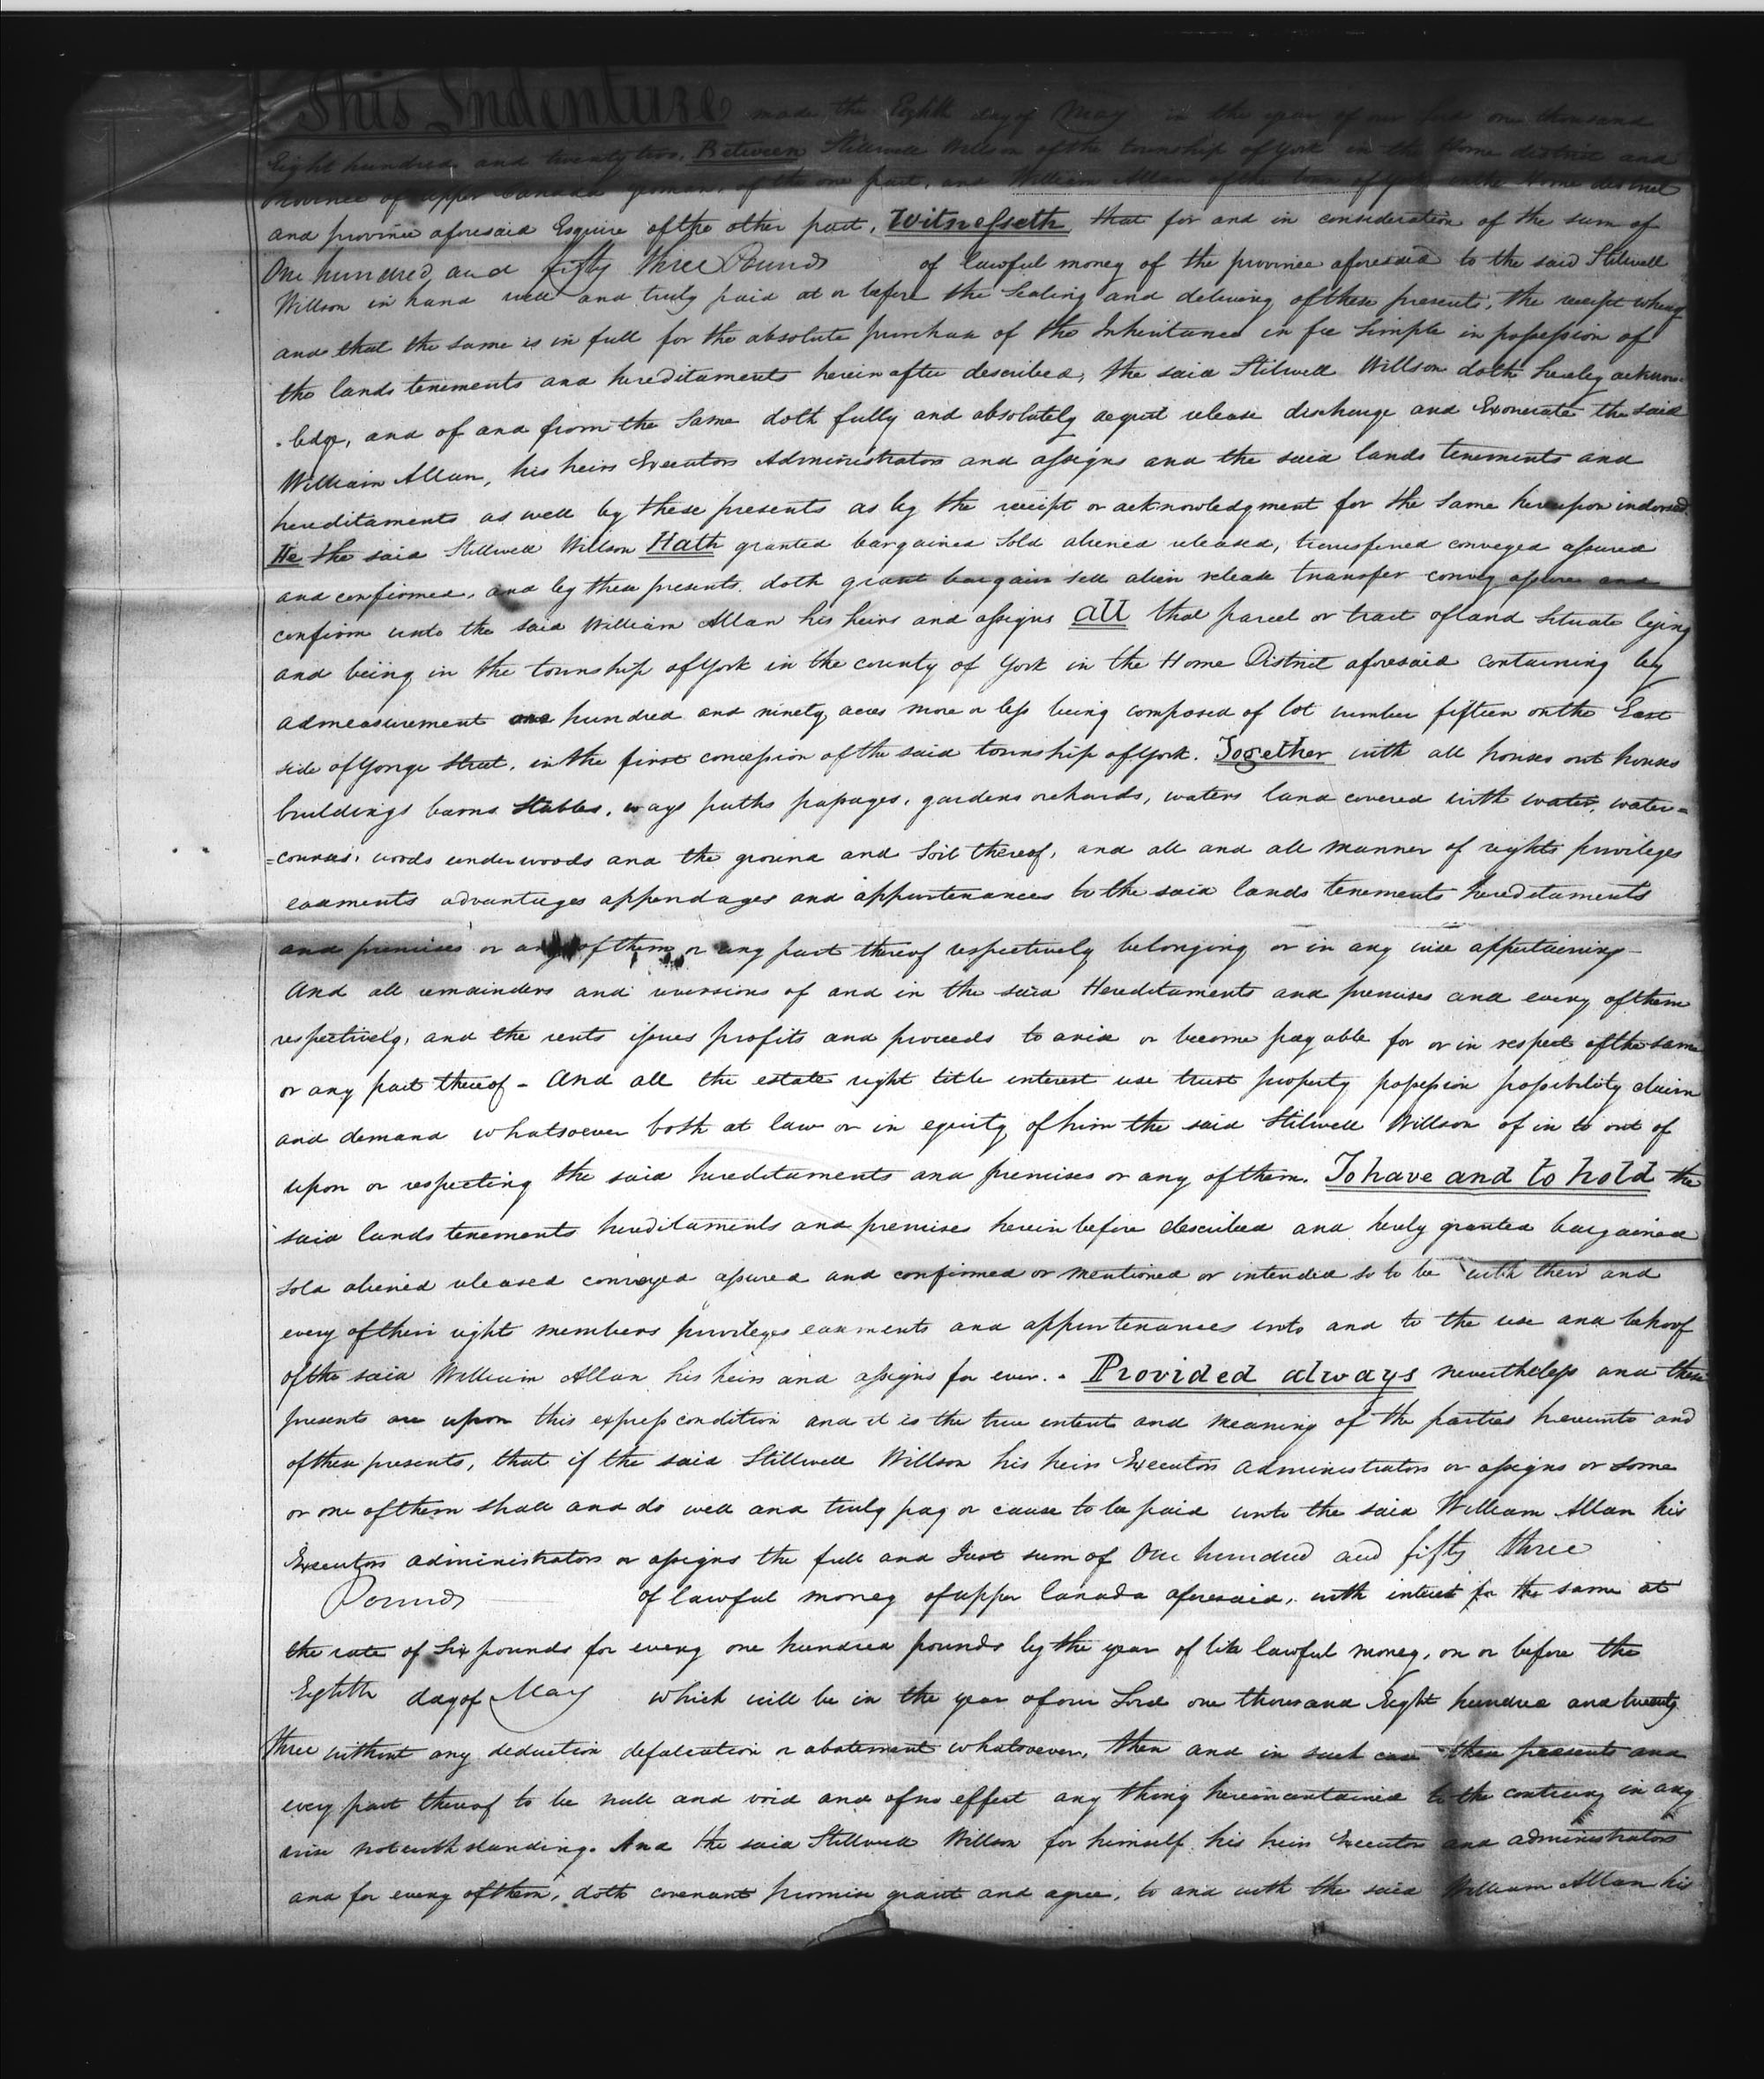 This Indenture made the Eighth day of May in the year of our Lord one thousand
Eight hundred and twenty two, Between Stillwell Willson of the township of York in the Home district and
Province of upper Canada yeoman, of the one part, and William Allan of the town of York in the Home district
and province aforesaid Esquire of the other part, Witnesseth that for and in consideration of the sum of
One hundred and fifty three Pounds of lawful money of the province aforesaid to the said Stilwell
Willson in hand well and truly paid at or before the Sealing and delivering of these presents, the receipt whereof
and that the same is in full for the absolute purchase of the Inheritance in fee Simple in possession of
the lands tenements and hereditaments herein after described, the said Stilwell Willson doth hereby acknow-
-ledge, and of and from the Same doth fully and absolutely acquit release discharge and Exonerate the said
William Allan, his heirs Executors Administrators and assigns and the said lands tenements and
hereditaments as well by these presents as by the receipt or acknowledgment for the Same hereupon indorsed.
He the said Stillwell Willson Hath granted bargained Sold aliened released, transferred conveyed assured
and confirmed, and by these presents doth grant bargain sell alien release transfer convey assure and
confirm unto the said William Allan his heirs and assigns all that parcel or tract of land Situate lying
and being in the township of York in the county of York in the Home District aforesaid containing by
admeasurement one hundred and ninety acres more or less being composed of lot number fifteen on the East
side of Yonge Street, in the first concession of the said township of York. Together with all houses out houses
buildings barns Stables, ways paths passages, gardens orchards, waters land covered with water, water=
=courses, woods underwoods and the ground and Soil thereof, and all and all manner of rights privileges
easments advantages appendages and appurtenances to the said lands tenements hereditaments
and premises or any of them or any part thereof respectively belonging or in any wise appertaining-
And all remainders and reversions of and in the said Hereditaments and premises and every of them
respectively, and the rents issues profits and proceeds to arise or become payable for or in respect of the same
or any part thereof - And all the estate right title interest use trust property possession possibility claim
and demand whatsoever both at law or in equity of him the said Stilwell Willson of in to out of
upon or respecting the said hereditaments and premises or any of them. To have and to hold the
said lands tenements hereditaments and premises herein before described and hereby granted bargained
sold aliened released conveyed assured and confirmed or mentioned or intended so to be with their and
every of their right members privileges easments and appurtenances unto and to the use and behoof
of the said William Allan his heirs and assigns for ever. - Provided always nevertheless and these
presents are upon this express condition and it is the true intent and meaning of the parties hereunto and
of these presents, that if the said Stillwell Willson his heirs Executors administrators or assigns or some
or one of them shall and do well and truly pay or cause to be paid unto the said William Allan his
Executors administrators or assigns the full and Just sum of One hundred and fifty three
Pounds of lawful money of upper Canada aforesaid, with interest for the same at
the rate of Six pounds for every one hundred pounds by the year of like lawful money, on or before the
Eighth day of May which will be in the year of our Lord one thousand Eight hundred and twenty
three without any deduction defalcation or abatement whatsoever, then and in such case these presents and
every part thereof to be null and void and of no effect any thing herein contained to the contrary in any
wise notwithstanding. And the said Stillwell Willson for himself his heirs Executors and administrators
and for every of them, doth covenant promise grant and agree, to and with the said William Allan his